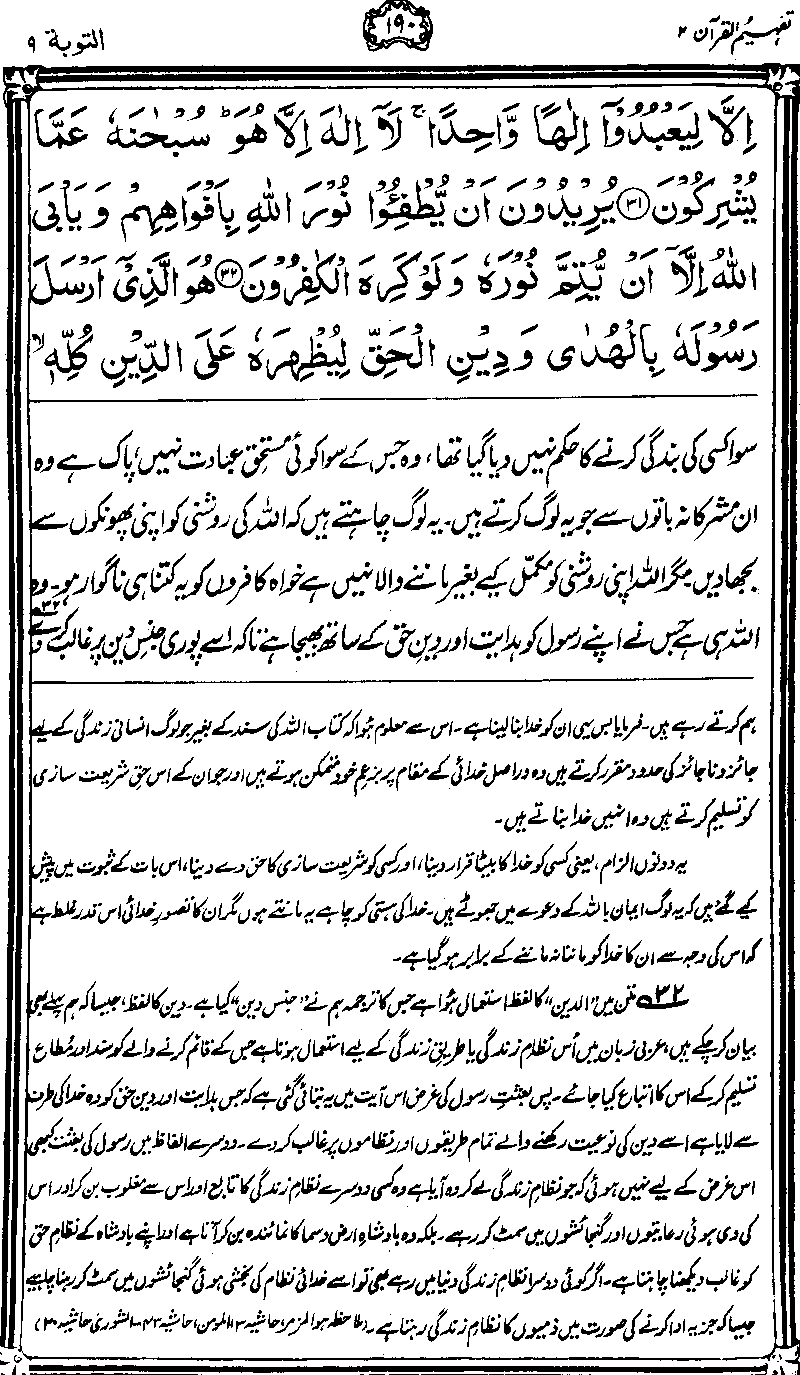 تفہیم القرآن ۲
۱۹۰
التوبة ۹
اِلَّا لِيَعْبُدُوْٓا اِلٰهًا وَّاحِدًا ۚ لَآ اِلٰهَ اِلَّا هُوَ ؕ سُبْحٰنَهٗ عَمَّا
يُشْرِكُوْنَ ﴿۳۱﴾ يُرِيْدُوْنَ اَنْ يُّطْفِـُٔوْا نُوْرَ اللّٰهِ بِاَفْوَاهِهِمْ وَ يَاْبَى
اللّٰهُ اِلَّآ اَنْ يُّتِمَّ نُوْرَهٗ وَ لَوْ كَرِهَ الْكٰفِرُوْنَ ﴿۳۲﴾ هُوَ الَّذِيْٓ اَرْسَلَ
رَسُوْلَهٗ بِالْهُدٰى وَ دِيْنِ الْحَقِّ لِيُظْهِرَهٗ عَلَى الدِّيْنِ كُلِّهٖ ۙ
سوا کسی کی بندگی کرنے کا حکم نہیں دیا گیا تھا، وہ جس کے سوا کوئی مستحق عبادت نہیں، پاک ہے وہ
ان مشرکانہ باتوں سے جو یہ لوگ کرتے ہیں۔ یہ لوگ چاہتے ہیں کہ اللہ کی روشنی کو اپنی پھونکوں سے
بجھا دیں مگر اللہ اپنی روشنی کو مکمّل کیے بغیر ماننے والا نہیں ہے خواہ کافروں کو یہ کتنا ہی ناگوار ہو۔ وہ
اللہ ہی ہے جس نے اپنے رسول کو ہدایت اور دینِ حق کے ساتھ بھیجا ہے تاکہ اسے پوری جنسِ دین پر غالب کر دے ۳۲
ہم کرتے رہے ہیں۔ فرمایا بس یہی ان کو خدا بنا لینا ہے۔ اس سے معلوم ہوا کہ کتاب اللہ کی سند کے بغیر جو لوگ انسانی زندگی کے لیے
جائز و ناجائز کی حدود مقرر کرتے ہیں وہ دراصل خدائی کے مقام پر بزعمِ خود متمکن ہوتے ہیں اور جو ان کے اس حقِ شریعت سازی
کو تسلیم کرتے ہیں وہ انہیں خدا بناتے ہیں۔
یہ دونوں الزام، یعنی کسی کو خدا کا بیٹا قرار دینا، اور کسی کو شریعت سازی کا حق دے دینا، اس بات کے ثبوت میں پیش
کیے گئے ہیں کہ یہ لوگ ایمان باللہ کے دعوے میں جھوٹے ہیں۔ خدا کی ہستی کو چاہے یہ مانتے ہوں مگر ان کا تصورِ خدائی اس قدر غلط ہے
کہ اس کی وجہ سے ان کا خدا کو ماننا نہ ماننے کے برابر ہو گیا ہے۔
۳۲ متن میں ”الدین“ کا لفظ استعمال ہوا ہے جس کا ترجمہ ہم نے ”جنس دین“ کیا ہے۔ دین کا لفظ، جیسا کہ ہم پہلے بھی
بیان کر چکے ہیں، عربی زبان میں اُس نظامِ زندگی یا طریقِ زندگی کے لیے استعمال ہوتا ہے جس کے قائم کرنے والے کو سند اور مُطاع
تسلیم کر کے اس کا اتباع کیا جائے۔ پس بعثتِ رسول کی غرض اس آیت میں یہ بتائی گئی ہے کہ جس ہدایت اور دینِ حق کو وہ خدا کی طرف
سے لایا ہے اسے دین کی نوعیت رکھنے والے تمام طریقوں اور نظاموں پر غالب کر دے۔ دوسرے الفاظ میں رسول کی بعثت کبھی
اس غرض کے لیے نہیں ہوئی کہ جو نظامِ زندگی لے کر وہ آیا ہے وہ کسی دوسرے نظامِ زندگی کا تابع اور اس سے مغلوب بن کر اور اس
کی دی ہوئی رعایتوں اور گنجائشوں میں سمٹ کر رہے۔ بلکہ وہ بادشاہِ ارض و سما کا نمائندہ بن کر آتا ہے اور اپنے بادشاہ کے نظامِ حق
کو غالب دیکھنا چاہتا ہے۔ اگر کوئی دوسرا نظامِ زندگی دنیا میں رہے بھی تو اسے خدائی نظام کی بخشی ہوئی گنجائشوں میں سمٹ کر رہنا چاہیے
جیسا کہ جزیہ ادا کرنے کی صورت میں ذمیوں کا نظامِ زندگی رہتا ہے۔ (ملاحظہ ہو الزمر، حاشیہ ۳، المومن، حاشیہ ۴۳۔ الشوریٰ حاشیہ ۲۰)